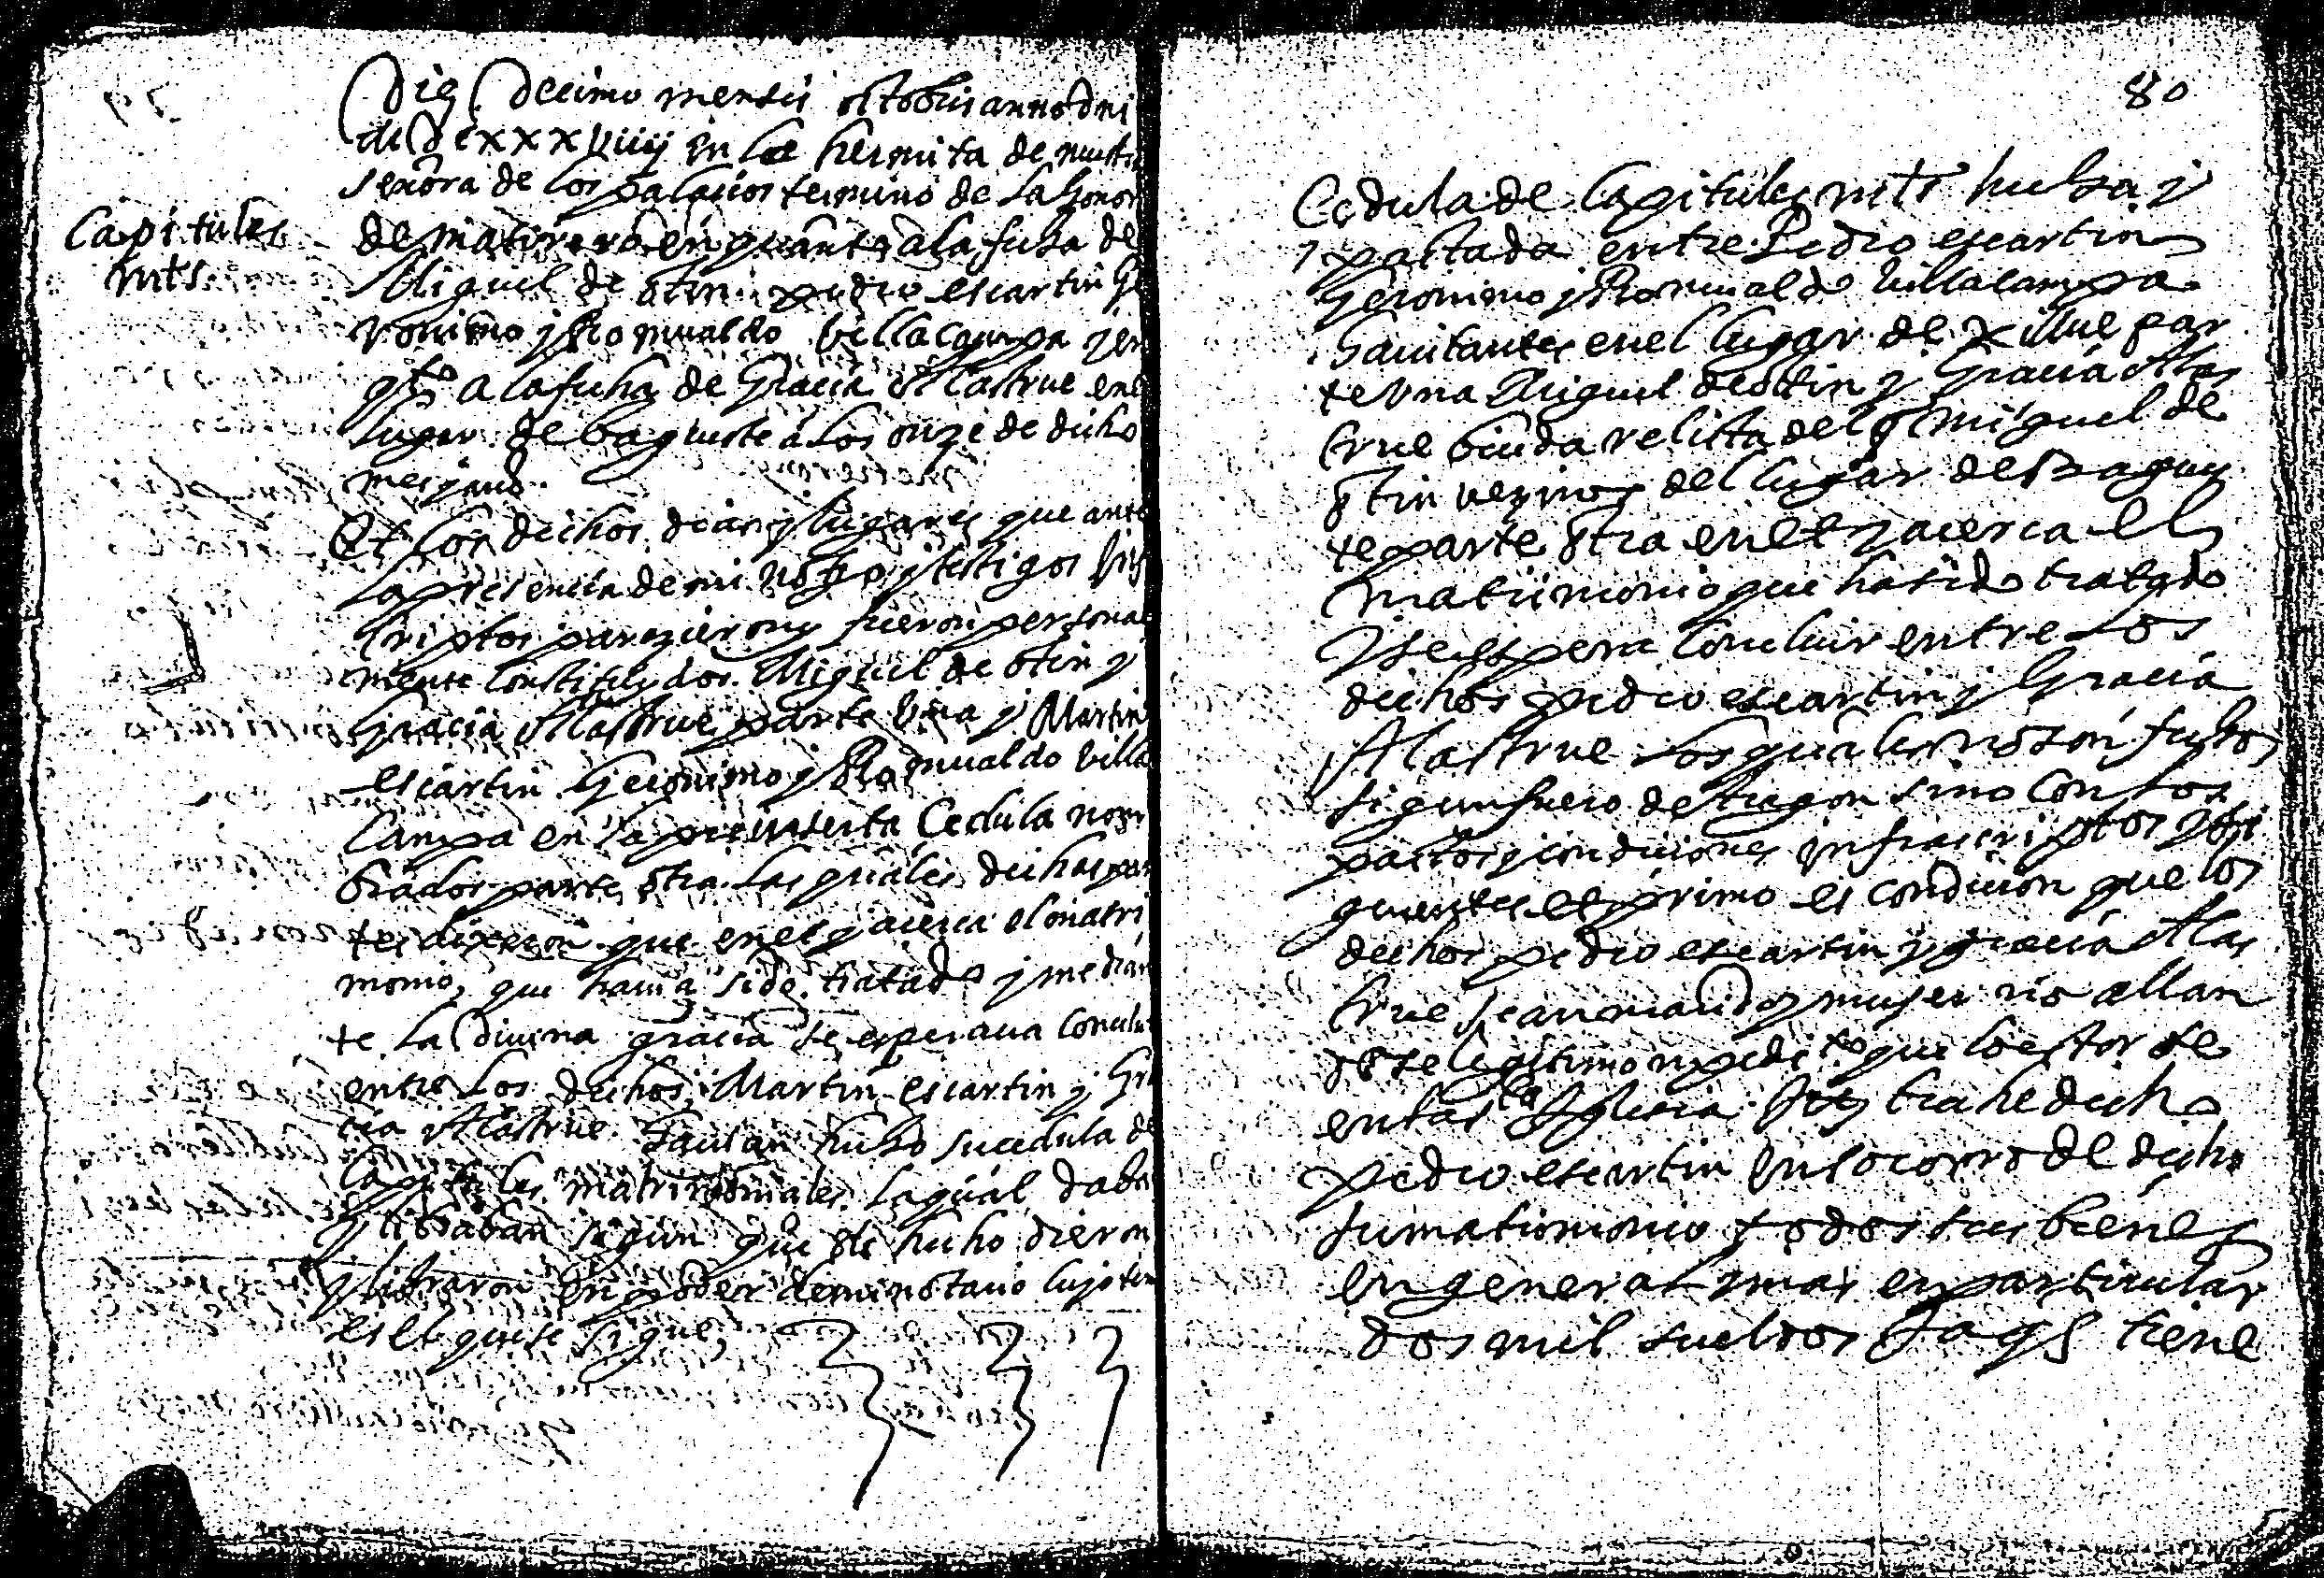 Capitules
mts
Die Decimo mensis octobris anno dni
MDCxxxviiij en la hermita de nuestra
señora de los palacios termino de la honor
de matirero en quanto a la firma de
Miguel de otin pedro escartin Ge
ronimo y Romualdo villacampa y en
qto a la firma de Gracia Allastrue en el
lugar de bagueste a los onze de dicho
mes y año.
Et los dichos dias y lugares que ante
la presencia de mi notº y testigos infra
scriptos parezieron y fueron personal
mente constituydos Miguel de otin y
Gracia Allastrue parte vna y Martin
escartin Geronimo y Romualdo villa
campa en la preinserta Cedula nom
brados parte otra las quales dichas par
tes dixeron que en et acerca el matri
monio, que hauia sido tratado y median
te la diuina gracia se esperaua concluir
entre los dichos Martin escartin y Gra
cia Allastrue hauian hecho su cedula de
Capitules matrimoniales la qual daban
y libraban segun que de hecho dieron
y libraron en poder de mi notario cuyo tenor
es el que se sigue
80
Cedula de Capitules mts hecha y
y pactada entre Pedro escartin
Geronimo y Romualdo Villacampa
hauitantes en el lugar de xillue par
te vna Miguel de otin y Gracia Allas
true biuda relicta del qº miguel de
otin vezinos del lugar de Bagues
te parte otra en et acerca el
matrimonio que ha sido tratado
y se espera concluir entre los
dichos pedro escartin y Gracia
Allastrue los quales no son hechos
segun fuero de Aragon sino con los
pactos y condiciones infrascriptos y si
guientes et primo es condicion que los
dichos pedro escartin y gracia Allas
true sean marido y muger no allan
dose legitimo inpedito que lo estorbe
en la sta Iglesia. Ittem trahe dicho
pedro escartin en socorro de dicho
su matrimonio todos sus bienes
en general y mas en particular
dos mil sueldos Jaqs tiene